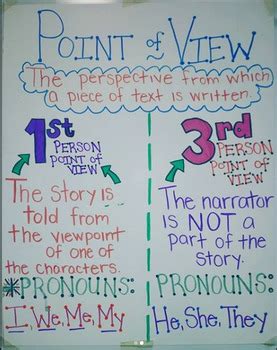 POINT of VIEW
The perspective from which
a piece of text is written.
1st
PERSON
POINT OF
VIEW
The Story is
told from
the viewpoint
of one
of the
characters.
*PRONOUNS:
I, We, Me, My
3rd
PERSON
POINT OF
VIEW
The narrator
is NOT a
part of the
story.
PRONOUNS:
He, She, They